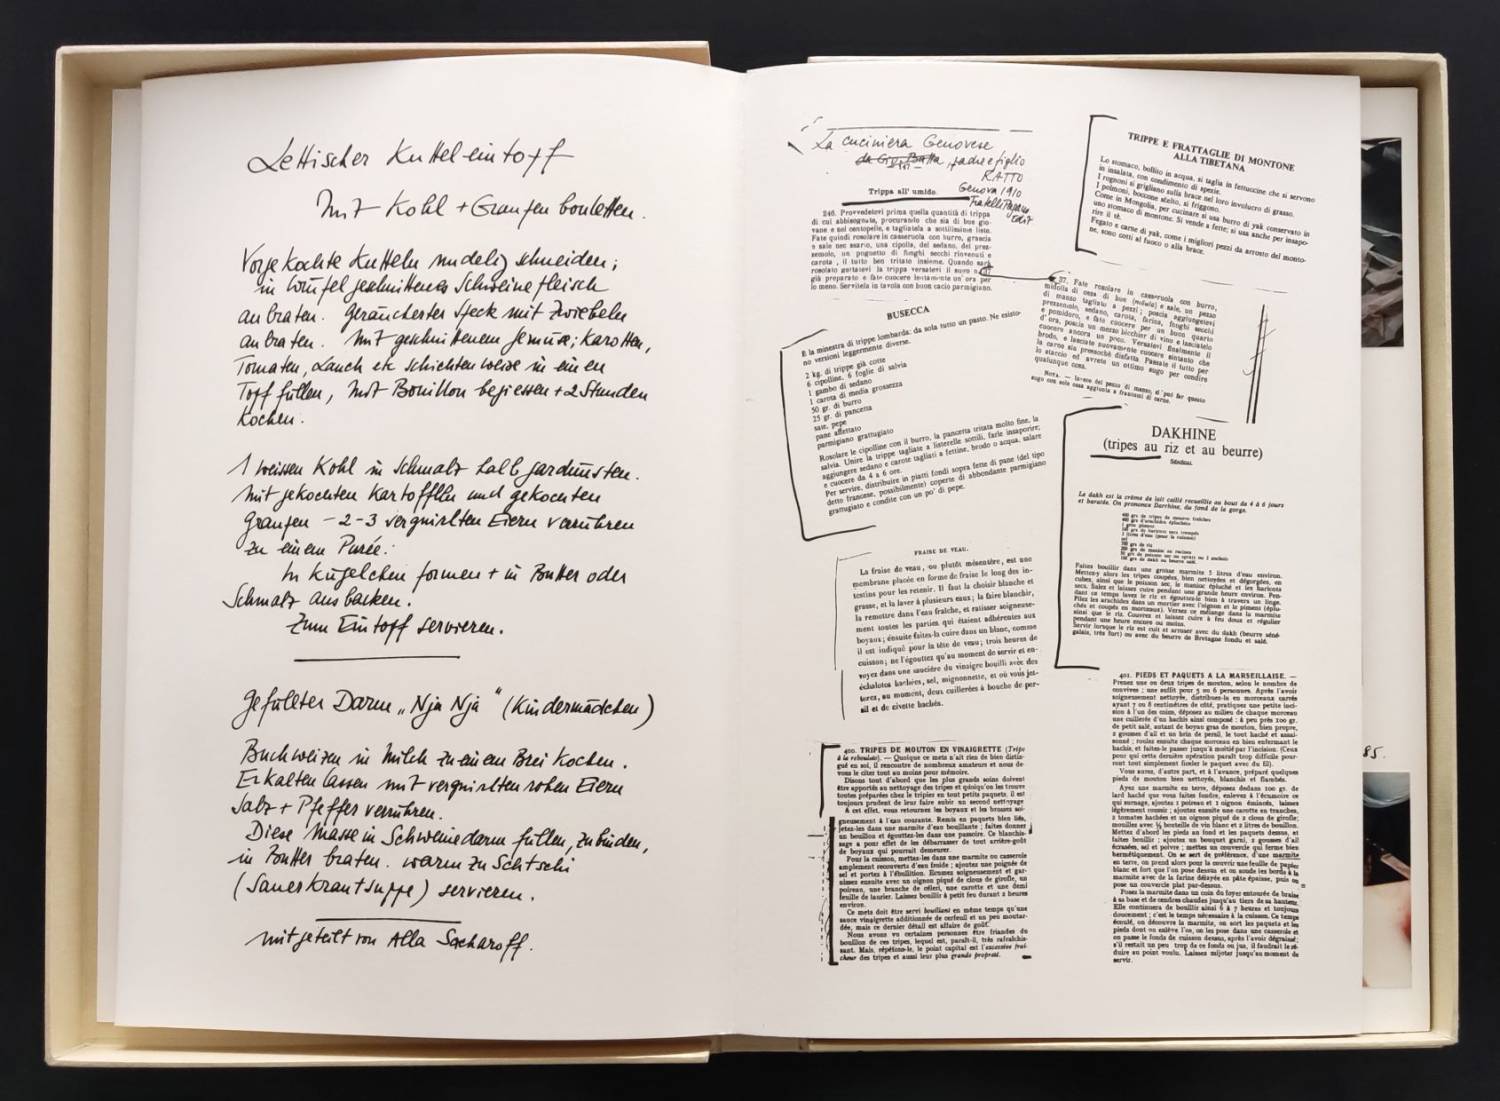 Lettischer Kutteleintopf
mit Kohl + Graupenbouletten.
Vorgekochte Kutteln nudelig schneiden;
in Würfel geschnittenes Schweinefleisch
anbraten. Geräucherter Speck mit Zwiebeln
anbraten. Mit geschnittenem Gemüse; Karotten,
Tomaten, Lauch etc schichtenweise in einen
Topf füllen, mit Bouillon begiessen + 2 Stunden
Kochen.
1 weissen Kohl in Schmalz halb gardünsten.
Mit gekochten Kartoffeln und gekochten
Graupen – 2-3 verquirlten Eiern verrühren
zu einem Purée.
In Kügelchen formen + in Butter oder
Schmalz ausbacken.
Zum Eintopf servieren.
Gefüllter Darm „Nja Nja" (Kindermädchen)
Buchweizen in Milch zu einem Brei Kochen.
Erkalten lassen mit verquirlten rohen Eiern
Salz + Pfeffer verrühren.
Diese Masse in Schweinedarm füllen, zubinden,
in Butter braten. warm zu Schtschi
(Sauerkrautsuppe) servieren.
mitgeteilt von Alla Sacharoff.
La cuciniera Genovese
padre e figlio
RATTO
Genova 1910
Fratelli Pagano
edit
Trippa all' umido.
246. Provvedetevi prima quella quantità di trippa
di cui abbisognate, procurando che sia di bue gio-
vane e nel centopelle, e tagliatela a sottilissime liste.
Fate quindi rosolare in casseruola con burro, grascia
o sale nec essario, una cipolla, del sedano, del prez-
zemolo, un pognetto di funghi secchi rinvenuti e
carota , il tutto ben tritato insieme. Quando sarà
rosolato gettatevi la trippa versatevi il sugo n. 37
già preparato e fate cuocere lentamente un' ora per
lo meno. Servitela in tavola con buon cacio parmigiano.
TRIPPE E FRATTAGLIE DI MONTONE
ALLA TIBETANA
Lo stomaco, bollito in acqua, si taglia in fettuccine che si servono
in insalata, con condimento di spezie.
I rognoni si grigliano sulla brace nel loro involucro di grasso.
I polmoni, boccone scelto, si friggono.
Come in Mongolia, per cucinare si usa burro di yak conservato in
uno stomaco di montone. Si vende a fette; si usa anche per insapo-
rire il tè.
Fegato e carne di yak, come i migliori pezzi da arrosto del monto-
ne, sono cotti al fuoco o alla brace.
37. Fate rosolare in casseruola con burro,
midolla di ossa di bue (midulo) e sale, un pezzo
di manzo tagliato a pezzi; poscia aggiungetevi
prezzemolo, sedano, carota, farina, funghi secchi
e pomidoro, e fate cuocere per un buon quarto
d' ora, poscia un mezzo bicchier di vino e lasciatelo
cuocere ancora un poco. Versatevi finalmente il
brodo, e lasciate nuovamente cuocere sintanto che
la carne sia pressochè disfatta Passate il tutto per
lo staccio ed avrete un ottimo sugo per condire
qualunque cosa.
BUSECCA
È la minestra di trippe lombarda: da sola tutto un pasto. Ne esisto-
no versioni leggermente diverse.
2 kg. di trippe già cotte
6 cipolline, 6 foglie di salvia
1 gambo di sedano
1 carota di media grossezza
50 gr. di burro
25 gr. di pancetta
sale, pepe
pane affettato
parmigiano grattugiato
Rosolare le cipolline con il burro, la pancetta tritata molto fine, la
salvia. Unire la trippe tagliate a listerelle sottili, farle insaporire;
aggiungere sedano e carote tagliati a fettine, brodo o acqua, salare
e cuocere da 4 a 6 ore.
Per servire, distribuire in piatti fondi sopra fette di pane (del tipo
detto francese, possibilmente) coperte di abbondante parmigiano
grattugiato e condite con un po' di pepe.
DAKHINE
(tripes au riz et au beurre)
SÉNÉGAL
Le dakh est la crème de lait caillé recueillie au bout de 4 à 6 jours
et barattée. On prononce Darrhine, du fond de la gorge.
Faites bouillir dans une grosse marmite 5 litres d'eau environ.
Mettez-y alors les tripes coupées, bien nettoyées et dégorgées, en
cubes, ainsi que le poisson sec, le manioc épluché et les haricots
secs. Salez et laissez cuire pendant une grande heure environ. Pen-
dant ce temps lavez le riz et égouttez-le bien à travers un linge.
Pilez les arachides dans un mortier avec l'oignon et le piment (éplu-
chés et coupés en morceaux). Versez ce mélange dans la marmite
ainsi que le riz. Couvrez et laissez cuire à feu doux et régulier
pendant une heure encore ou moins.
Servir lorsque le riz est cuit et arroser avec du dakh (beurre séné-
galais, très fort) ou avec du beurre de Bretagne fondu et salé.
FRAISE DE VEAU.
La fraise de veau, ou plutôt mésentère, est une
membrane placée en forme de fraise le long des in-
testins pour les retenir. Il faut la choisir blanche et
grasse, et la laver à plusieurs eaux; la faire blanchir,
la remettre dans l'eau fraîche, et ratisser soigneuse-
ment toutes les parties qui étaient adhérentes aux
boyaux; ensuite faites-la cuire dans un blanc, comme
il est indiqué pour la tête de veau; trois heures de
cuisson; ne l'égouttez qu'au moment de servir et en-
voyez dans une saucière du vinaigre bouilli avec des
échalotes hachées, sel, mignonnette, et où vous jet-
terez, au moment, deux cuillerées à bouche de per-
sil et de civette hachés.
400. TRIPES DE MOUTON EN VINAIGRETTE (Tripe
à la reboulade). — Quoique ce mets n'ait rien de bien distin-
gué en soi, il rencontre de nombreux amateurs et nous de-
vons le citer tout au moins pour mémoire.
Disons tout d'abord que les plus grands soins doivent
être apportés au nettoyage des tripes et quoiqu'on les trouve
toutes préparées chez le tripier en tout petits paquets, il est
toujours prudent de leur faire subir un second nettoyage
A cet effet, vous retournez les boyaux et les brossez soi-
gneusement à l'eau courante. Remis en paquets bien liés,
jetez-les dans une marmite d'eau bouillante; faites donner
un bouillon et égouttez-les dans une passoire. Ce blanchis-
sage a pour effet de les débarrasser de tout arrière-goût
de boyaux qui pourrait demeurer.
Pour la cuisson, mettez-les dans une marmite ou casserole
amplement recouverts d'eau froide; ajoutez une poignée de
sel et portez à l'ébullition. Ecumez soigneusement et gar-
nissez ensuite avec un oignon piqué de clous de girofle, un
poireau, une branche de céleri, une carotte et une demi
feuille de laurier. Laissez bouillir à petit feu durant 2 heures
environ.
Ce mets doit être servi bouillant en même temps qu'une
sauce vinaigrette additionnée de cerfeuil et un peu moutar-
dée, mais ce dernier détail est affaire de goût.
Nous avons vu certaines personnes être friandes du
bouillon de ces tripes, lequel est, paraît-il, très rafraîchis-
sant. Mais, répétons-le, le point capital est l'excessive fraî-
cheur des tripes et aussi leur plus grande propreté.
401. PIEDS ET PAQUETS A LA MARSEILLAISE. —
Prenez une ou deux tripes de mouton, selon le nombre de
convives; une suffit pour 5 ou 6 personnes. Après l'avoir
soigneusement nettoyée, distribuez-la en morceaux carrés
ayant 7 ou 8 centimètres de côté, pratiquez une petite inci-
sion à l'un des coins, déposez au milieu de chaque morceau
une cuillerée d'un hachis ainsi composé : à peu près 100 gr.
de petit salé, autant de boyau gras de mouton, bien propre,
2 gousses d'ail et un brin de persil, le tout haché et assai-
sonné; roulez ensuite chaque morceau en bien enfermant le
hachis, et faites-le passer jusqu'à moitié par l'incision. (Ceux
pour qui cette dernière opération paraît trop difficile pour-
ront tout simplement ficeler le paquet avec du fil).
Vous aurez, d'autre part, et à l'avance, préparé quelques
pieds de mouton bien nettoyés, blanchis et flambés.
Ayez une marmite en terre, déposez dedans 100 gr. de
lard haché que vous faites fondre, enlevez à l'écumoire ce
qui surnage, ajoutez 1 poireau et 1 oignon émincés, laissez
légèrement roussir; ajoutez ensuite une carotte en tranches,
2 tomates hachées et un oignon piqué de 2 clous de girofle;
mouillez avec ½ bouteille de vin blanc et 2 litres de bouillon.
Mettez d'abord les pieds au fond et les paquets dessus, et
faites bouillir; ajoutez un bouquet garni, 2 gousses d'ail
écrasées, sel et poivre; mettez un couvercle qui ferme bien
hermétiquement. On se sert de préférence, d'une marmite
en terre, on prend alors pour la couvrir une feuille de papier
blanc et fort que l'on pose dessus et on soude les bords à la
marmite avec de la farine délayée en pâte épaisse, puis on
pose un couvercle plat par-dessus.
Posez la marmite dans un coin du foyer entourée de braise
à sa base et de cendres chaudes jusqu'au tiers de sa hauteur.
Elle continuera de bouillir ainsi 6 à 7 heures et toujours
doucement; c'est le temps nécessaire à la cuisson. Ce temps
écoulé, on découvre la marmite, on sort les paquets et les
pieds dont on enlève l'os, on les pose dans une casserole et
on passe le fonds de cuisson dessus, après l'avoir dégraissé;
s'il restait un peu trop de ce fonds ou jus, il faudrait le ré-
duire au point voulu. Laissez mijoter jusqu'au moment de
servir.
85.